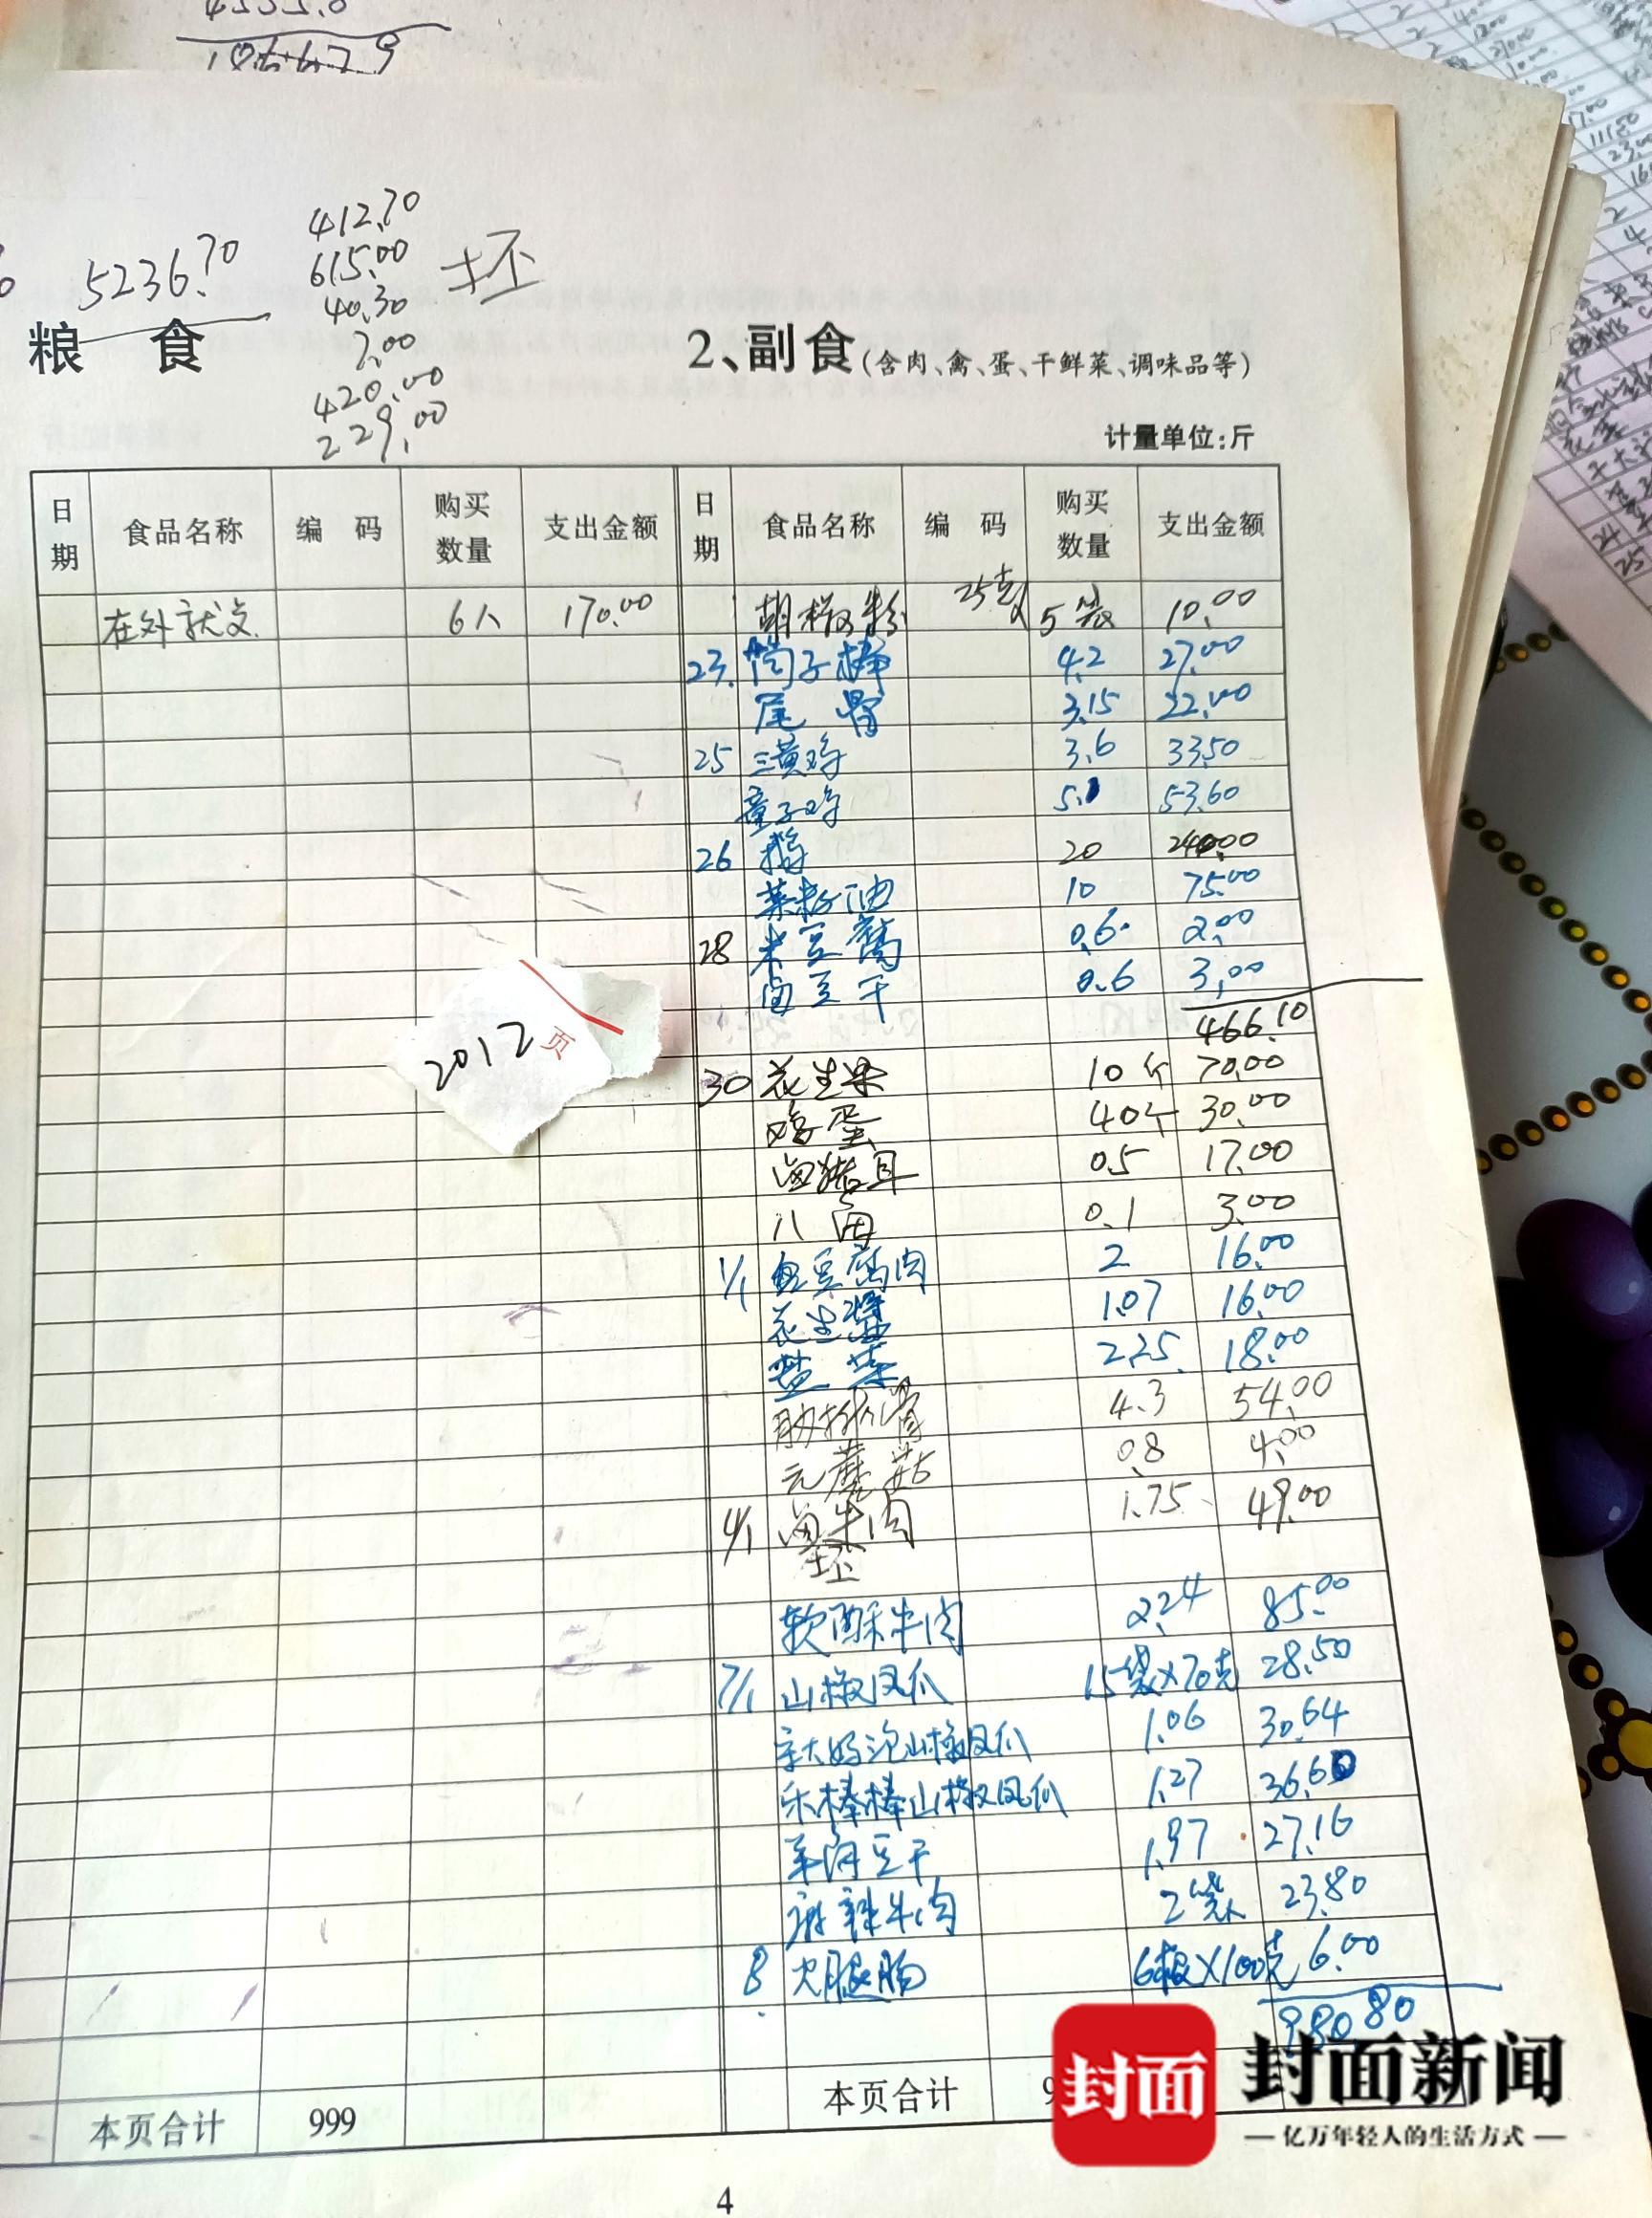 4555.0
106679
5236.70
412.70
615.00
40.30
7.00
420.00
229.00
坯
粮 食
2、副食(含肉、禽、蛋、干鲜菜、调味品等)
计量单位:斤
日期 食品名称 编 码 购买数量 支出金额 日期 食品名称 编 码 购买数量 支出金额
在外就文 6人 170.00 胡椒粉 25克 5袋 10.00
23. 筒子棒 4.2 27.00
尾骨 3.15 22.00
25 三黄鸡 3.6 33.50
童子鸡 5.1 53.60
26 鹅 20 240.00
菜籽油 10 75.00
28 米豆腐 0.6 2.00
卤豆干 0.6 3.00
466.10
2012 页
30 花生果 10斤 70.00
鸡蛋 40个 30.00
卤猪耳 0.5 17.00
八角 0.1 3.00
1/1 鱼豆腐肉 2 16.00
花生酱 1.07 16.00
盐菜 2.25 18.00
肋排骨 4.3 54.00
元蘑菇 0.8 4.00
4/1 卤牛肉 1.75 49.00
坯
软酥牛肉 2.24 85.00
7/1 山椒凤爪 15袋×70克 28.50
泡山椒凤爪 1.06 30.64
乐棒棒山椒凤爪 1.27 36.60
豆干 1.97 27.16
麻辣牛肉 2袋 23.80
8 火腿肠 6根×100克 6.00
980.80
本页合计 999 本页合计 9
4
封面
封面新闻
亿万年轻人的生活方式